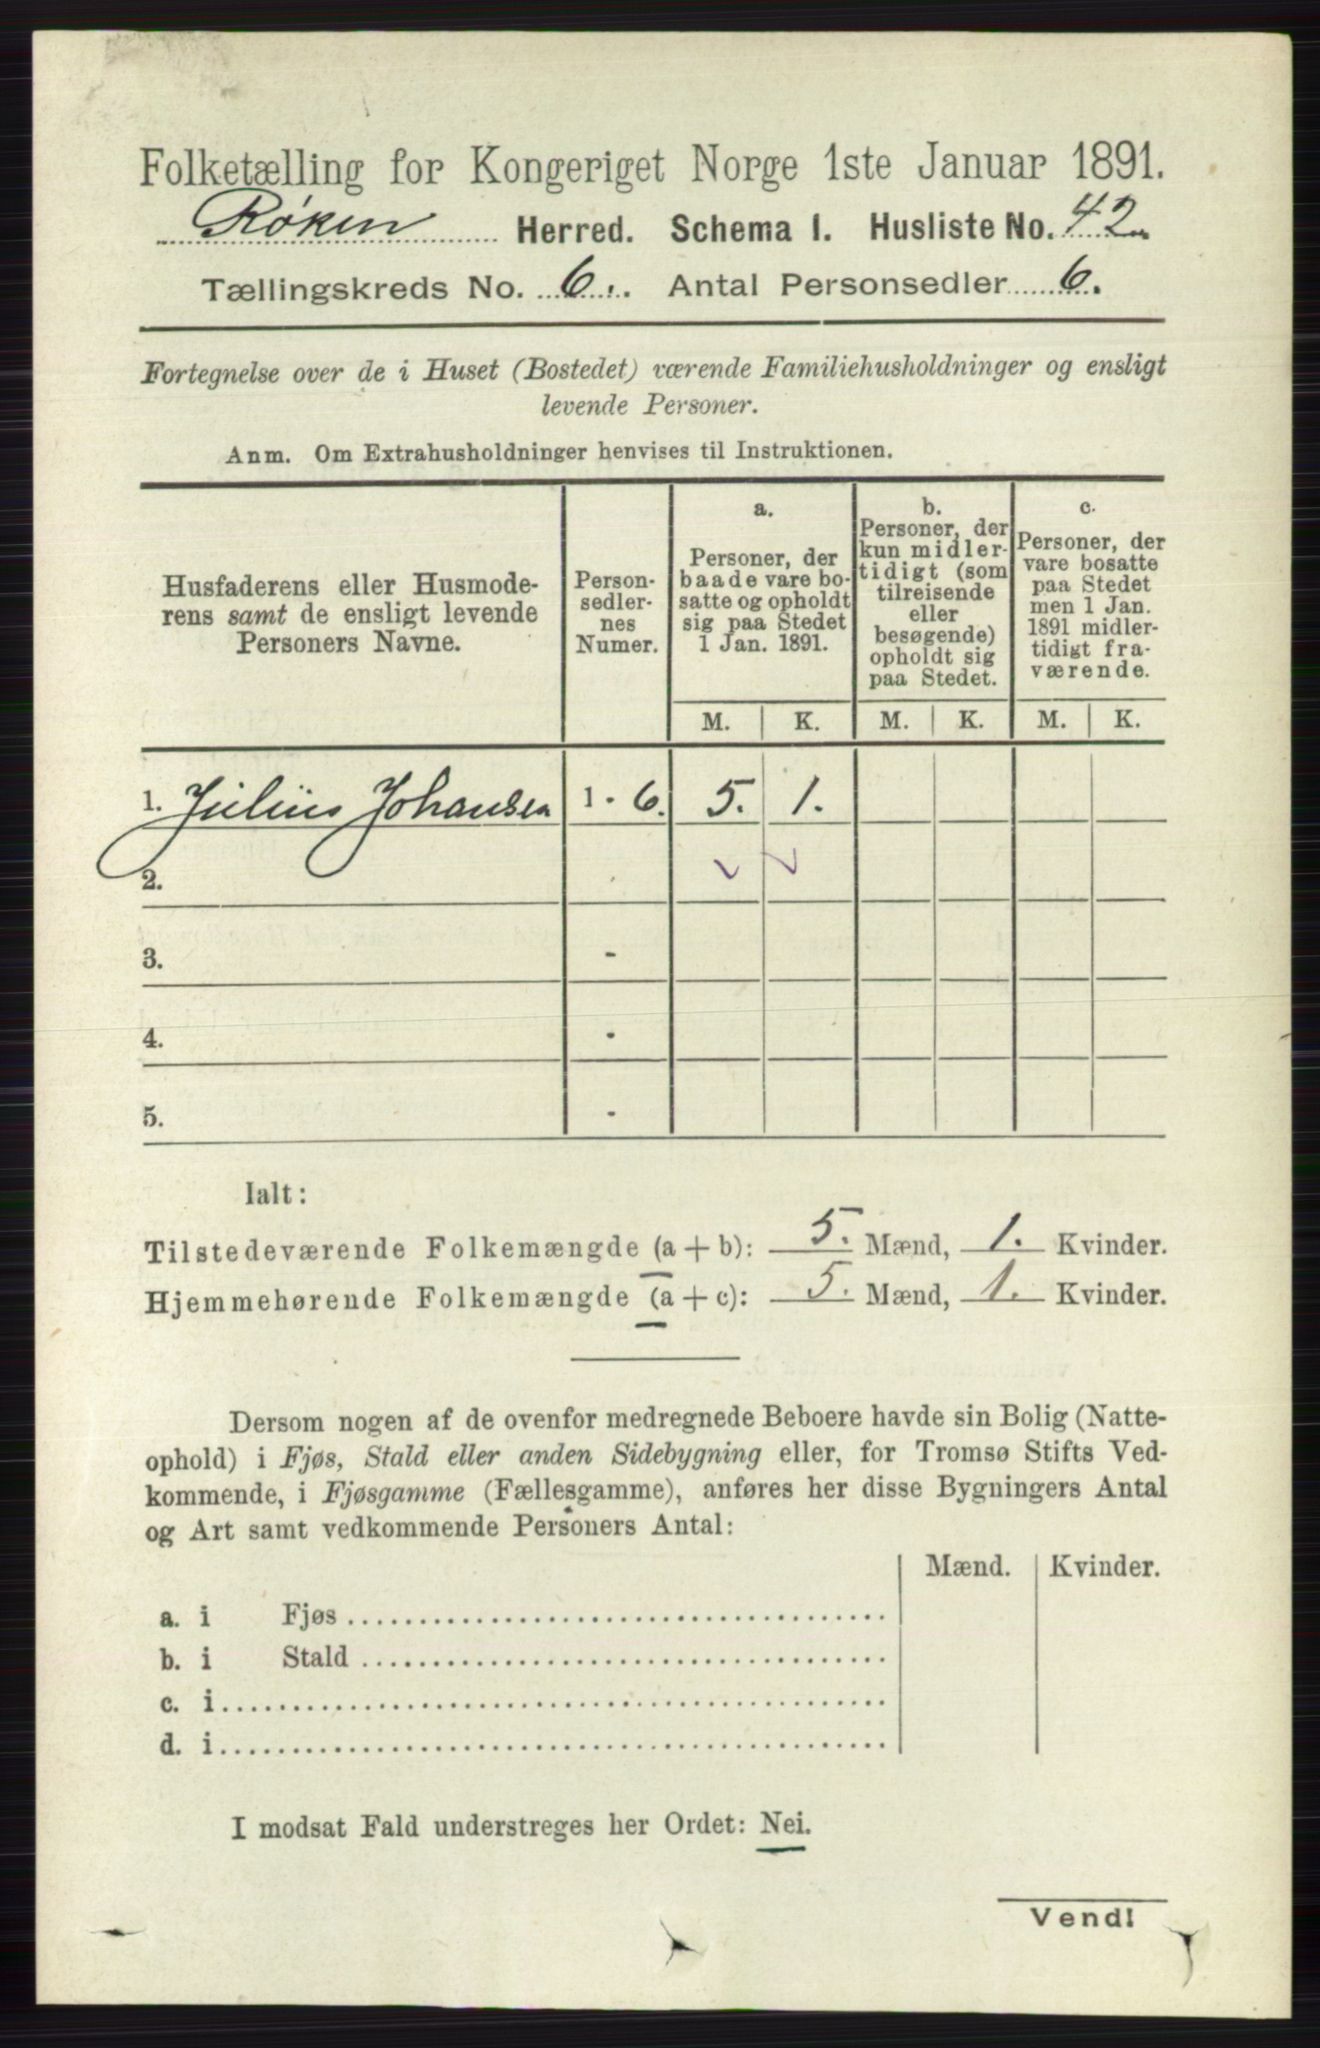 Folketælling for Kongeriget Norge 1ste Januar 1891.
Røken Herred. Schema I. Husliste No. 42
Tællingskreds No. 6. Antal Personsedler 6.
Fortegnelse over de i Huset (Bostedet) værende Familiehusholdninger og ensligt
levende Personer.
Anm. Om Extrahusholdninger henvises til Instruktionen.
Husfaderens eller Husmode-
rens samt de ensligt levende
Personers Navne.
Person-
sedler-
nes
Numer.
a.
Personer, der
baade vare bo-
satte og opholdt
sig paa Stedet
1 Jan. 1891.
b.
Personer, der
kun midler-
tidigt (som
tilreisende
eller
besøgende)
opholdt sig
paa Stedet.
c.
Personer, der
vare bosatte
paa Stedet
men 1 Jan.
1891 midler-
tidigt fra-
værende.
M. K. M. K. M. K.
1. Julius Johansen 1 - 6. 5. 1.
2.
3. -
4. -
5. -
Ialt:
Tilstedeværende Folkemængde (a + b): 5. Mænd, 1. Kvinder.
Hjemmehørende Folkemængde (a + c): 5. Mænd, 1. Kvinder.
Dersom nogen af de ovenfor medregnede Beboere havde sin Bolig (Natte-
ophold) i Fjøs, Stald eller anden Sidebygning eller, for Tromsø Stifts Ved-
kommende, i Fjøsgamme (Fællesgamme), anføres her disse Bygningers Antal
og Art samt vedkommende Personers Antal:
Mænd. Kvinder.
a. i Fjøs
b. i Stald
c. i
d. i
I modsat Fald understreges her Ordet: Nei.
Vend!